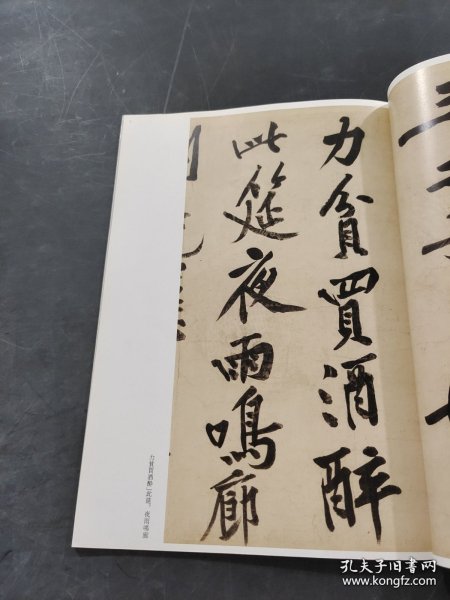 力貧買酒醉
此筵夜雨鳴廊
力貧買酒醉此筵。夜雨鳴廊
孔夫子旧书网
www.kongfz.com